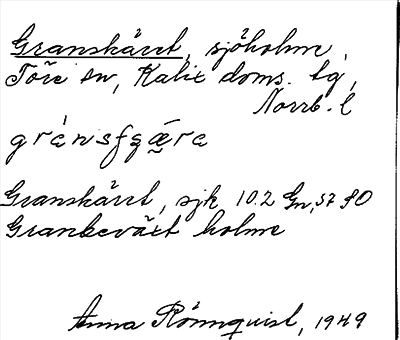 Granskäret, sjöholme,
Töre sn, Kalix doms. tg,
Norrb. l
gránsfʂǽra
Granskäret, sjk 10.2 Gn, 57 SO
Granbeväxt holme
Anna Rönnquist, 1949